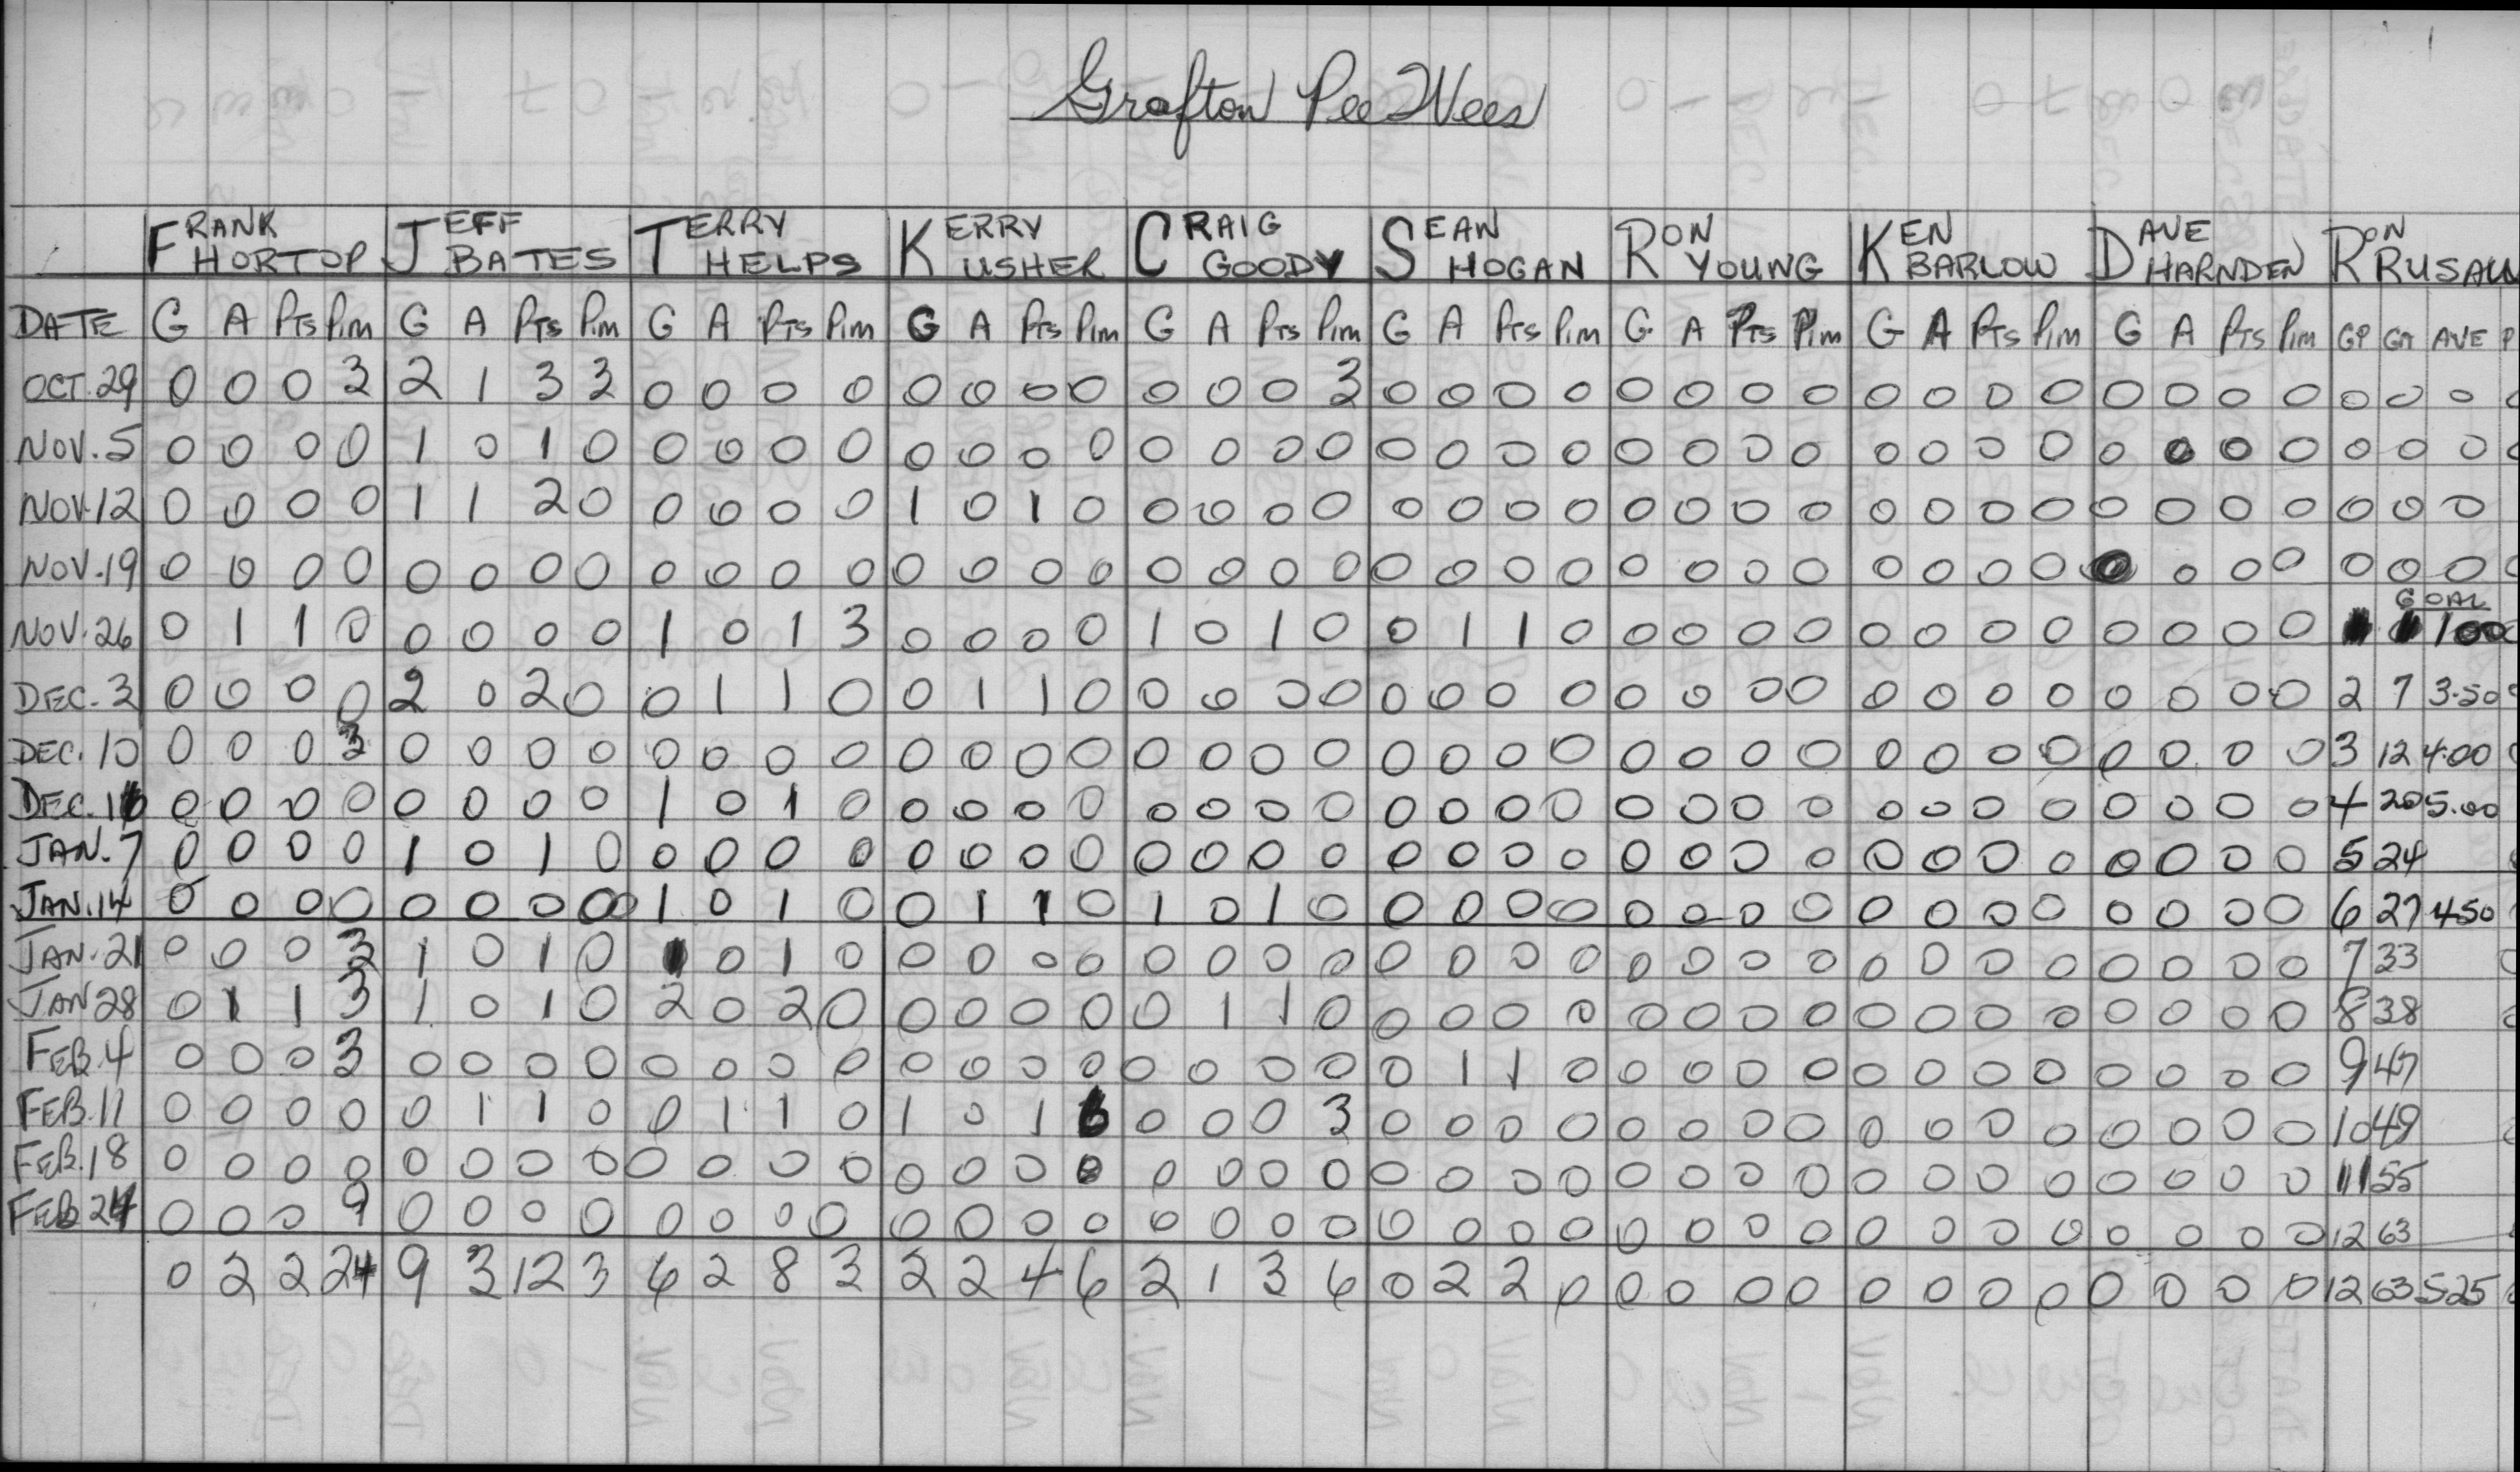 Grafton Pee Wees
FRANK HORTOP JEFF BATES TERRY HELPS KERRY USHER CRAIG GOODY SEAN HOGAN RON YOUNG KEN BARLOW DAVE HARNDEN RON
DATE G A Pts Pim G A Pts Pim G A Pts Pim G A Pts Pim G A Pts Pim G A Pts Pim G A Pts Pim G A Pts Pim G A Pts Pim GP GA AVE P
OCT. 29 0 0 0 3 2 1 3 3 0 0 0 0 0 0 0 0 0 0 0 3 0 0 0 0 0 0 0 0 0 0 0 0 0 0 0 0 0 0 0
NOV. 5 0 0 0 0 1 0 1 0 0 0 0 0 0 0 0 0 0 0 0 0 0 0 0 0 0 0 0 0 0 0 0 0 0 0 0 0 0 0 0
NOV. 12 0 0 0 0 1 1 2 0 0 0 0 0 1 0 1 0 0 0 0 0 0 0 0 0 0 0 0 0 0 0 0 0 0 0 0 0 0 0 0
NOV. 19 0 0 0 0 0 0 0 0 0 0 0 0 0 0 0 0 0 0 0 0 0 0 0 0 0 0 0 0 0 0 0 0 0 0 0 0 0 0 0
GOAL
NOV. 26 0 1 1 0 0 0 0 0 1 0 1 3 0 0 0 0 1 0 1 0 0 1 1 0 0 0 0 0 0 0 0 0 0 0 0 0 100
DEC. 3 0 0 0 0 2 0 2 0 0 1 1 0 0 1 1 0 0 0 0 0 0 0 0 0 0 0 0 0 0 0 0 0 0 0 0 0 2 7 3.50
DEC. 10 0 0 0 3 0 0 0 0 0 0 0 0 0 0 0 0 0 0 0 0 0 0 0 0 0 0 0 0 0 0 0 0 0 0 0 0 3 12 4.00
DEC. 16 0 0 0 0 0 0 0 0 1 0 1 0 0 0 0 0 0 0 0 0 0 0 0 0 0 0 0 0 0 0 0 0 0 0 0 0 4 20 5.00
JAN. 7 0 0 0 0 1 0 1 0 0 0 0 0 0 0 0 0 0 0 0 0 0 0 0 0 0 0 0 0 0 0 0 0 0 0 0 0 5 24
JAN. 14 0 0 0 0 0 0 0 0 1 0 1 0 0 1 1 0 1 0 1 0 0 0 0 0 0 0 0 0 0 0 0 0 0 0 0 0 6 27 450
JAN. 21 0 0 0 3 1 0 1 0 1 0 1 0 0 0 0 0 0 0 0 0 0 0 0 0 0 0 0 0 0 0 0 0 0 0 0 0 7 33
JAN 28 0 1 1 3 1 0 1 0 2 0 2 0 0 0 0 0 0 1 1 0 0 0 0 0 0 0 0 0 0 0 0 0 0 0 0 0 8 38
FEB. 4 0 0 0 3 0 0 0 0 0 0 0 0 0 0 0 0 0 0 0 0 0 1 1 0 0 0 0 0 0 0 0 0 0 0 0 0 9 47
FEB. 11 0 0 0 0 0 1 1 0 0 1 1 0 1 0 1 6 0 0 0 3 0 0 0 0 0 0 0 0 0 0 0 0 0 0 0 0 10 49
FEB. 18 0 0 0 0 0 0 0 0 0 0 0 0 0 0 0 0 0 0 0 0 0 0 0 0 0 0 0 0 0 0 0 0 0 0 0 0 11 55
FEB 24 0 0 0 9 0 0 0 0 0 0 0 0 0 0 0 0 0 0 0 0 0 0 0 0 0 0 0 0 0 0 0 0 0 0 0 0 12 63
0 2 2 24 9 3 12 3 6 2 8 3 2 2 4 6 2 1 3 6 0 2 2 0 0 0 0 0 0 0 0 0 0 0 0 0 12 63 525